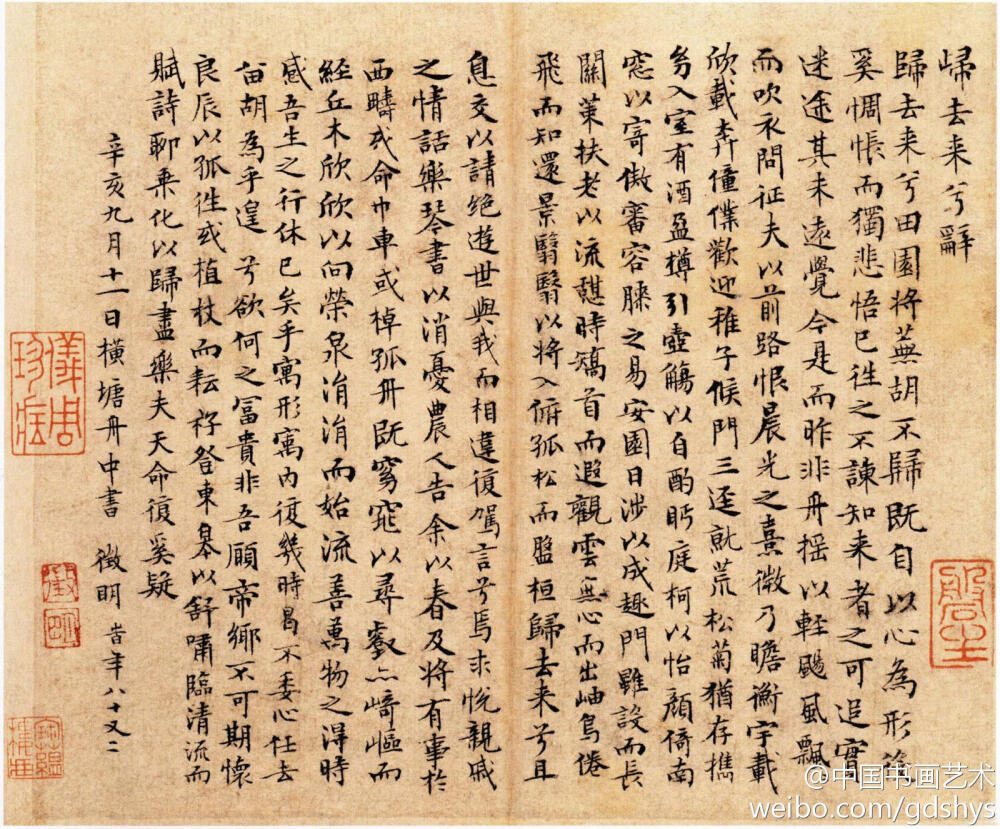 歸去来兮辭
歸去来兮田園将蕪胡不歸既自以心為形役
奚惆悵而獨悲悟已往之不諫知来者之可追實
迷途其未遠覺今是而昨非舟摇以輕颺風飄
而吹衣問征夫以前路恨晨光之熹微乃瞻衡宇載
欣載奔僮僕歡迎稚子候門三逕就荒松菊猶存攜
幼入室有酒盈樽引壺觴以自酌眄庭柯以怡顏倚南
窓以寄傲審容膝之易安園日涉以成趣門雖設而長
關策扶老以流憩時矯首而遐觀雲無心而出岫鳥倦
飛而知還景翳翳以将入俯孤松而盤桓歸去来兮且
息交以請絶遊世與我而相違復駕言兮焉求悅親戚
之情話樂琴書以消憂農人告余以春及将有事於
西疇或命巾車或棹孤舟既窈窕以尋壑亦崎嶇而
經丘木欣欣以向榮泉涓涓而始流善萬物之得時
感吾生之行休已矣乎寓形寓内復幾時曷不委心任去
留胡為乎遑 兮欲何之冨貴非吾願帝鄉不可期懷
良辰以孤往或植杖而耘耔登東皋以舒嘯臨清流而
賦詩聊乘化以歸盡樂夫天命復奚疑
辛亥九月十一日横塘舟中書 徵明 旹年八十又二
儀周珍藏
徵明
@中国书画艺术
weibo.com/gdshys